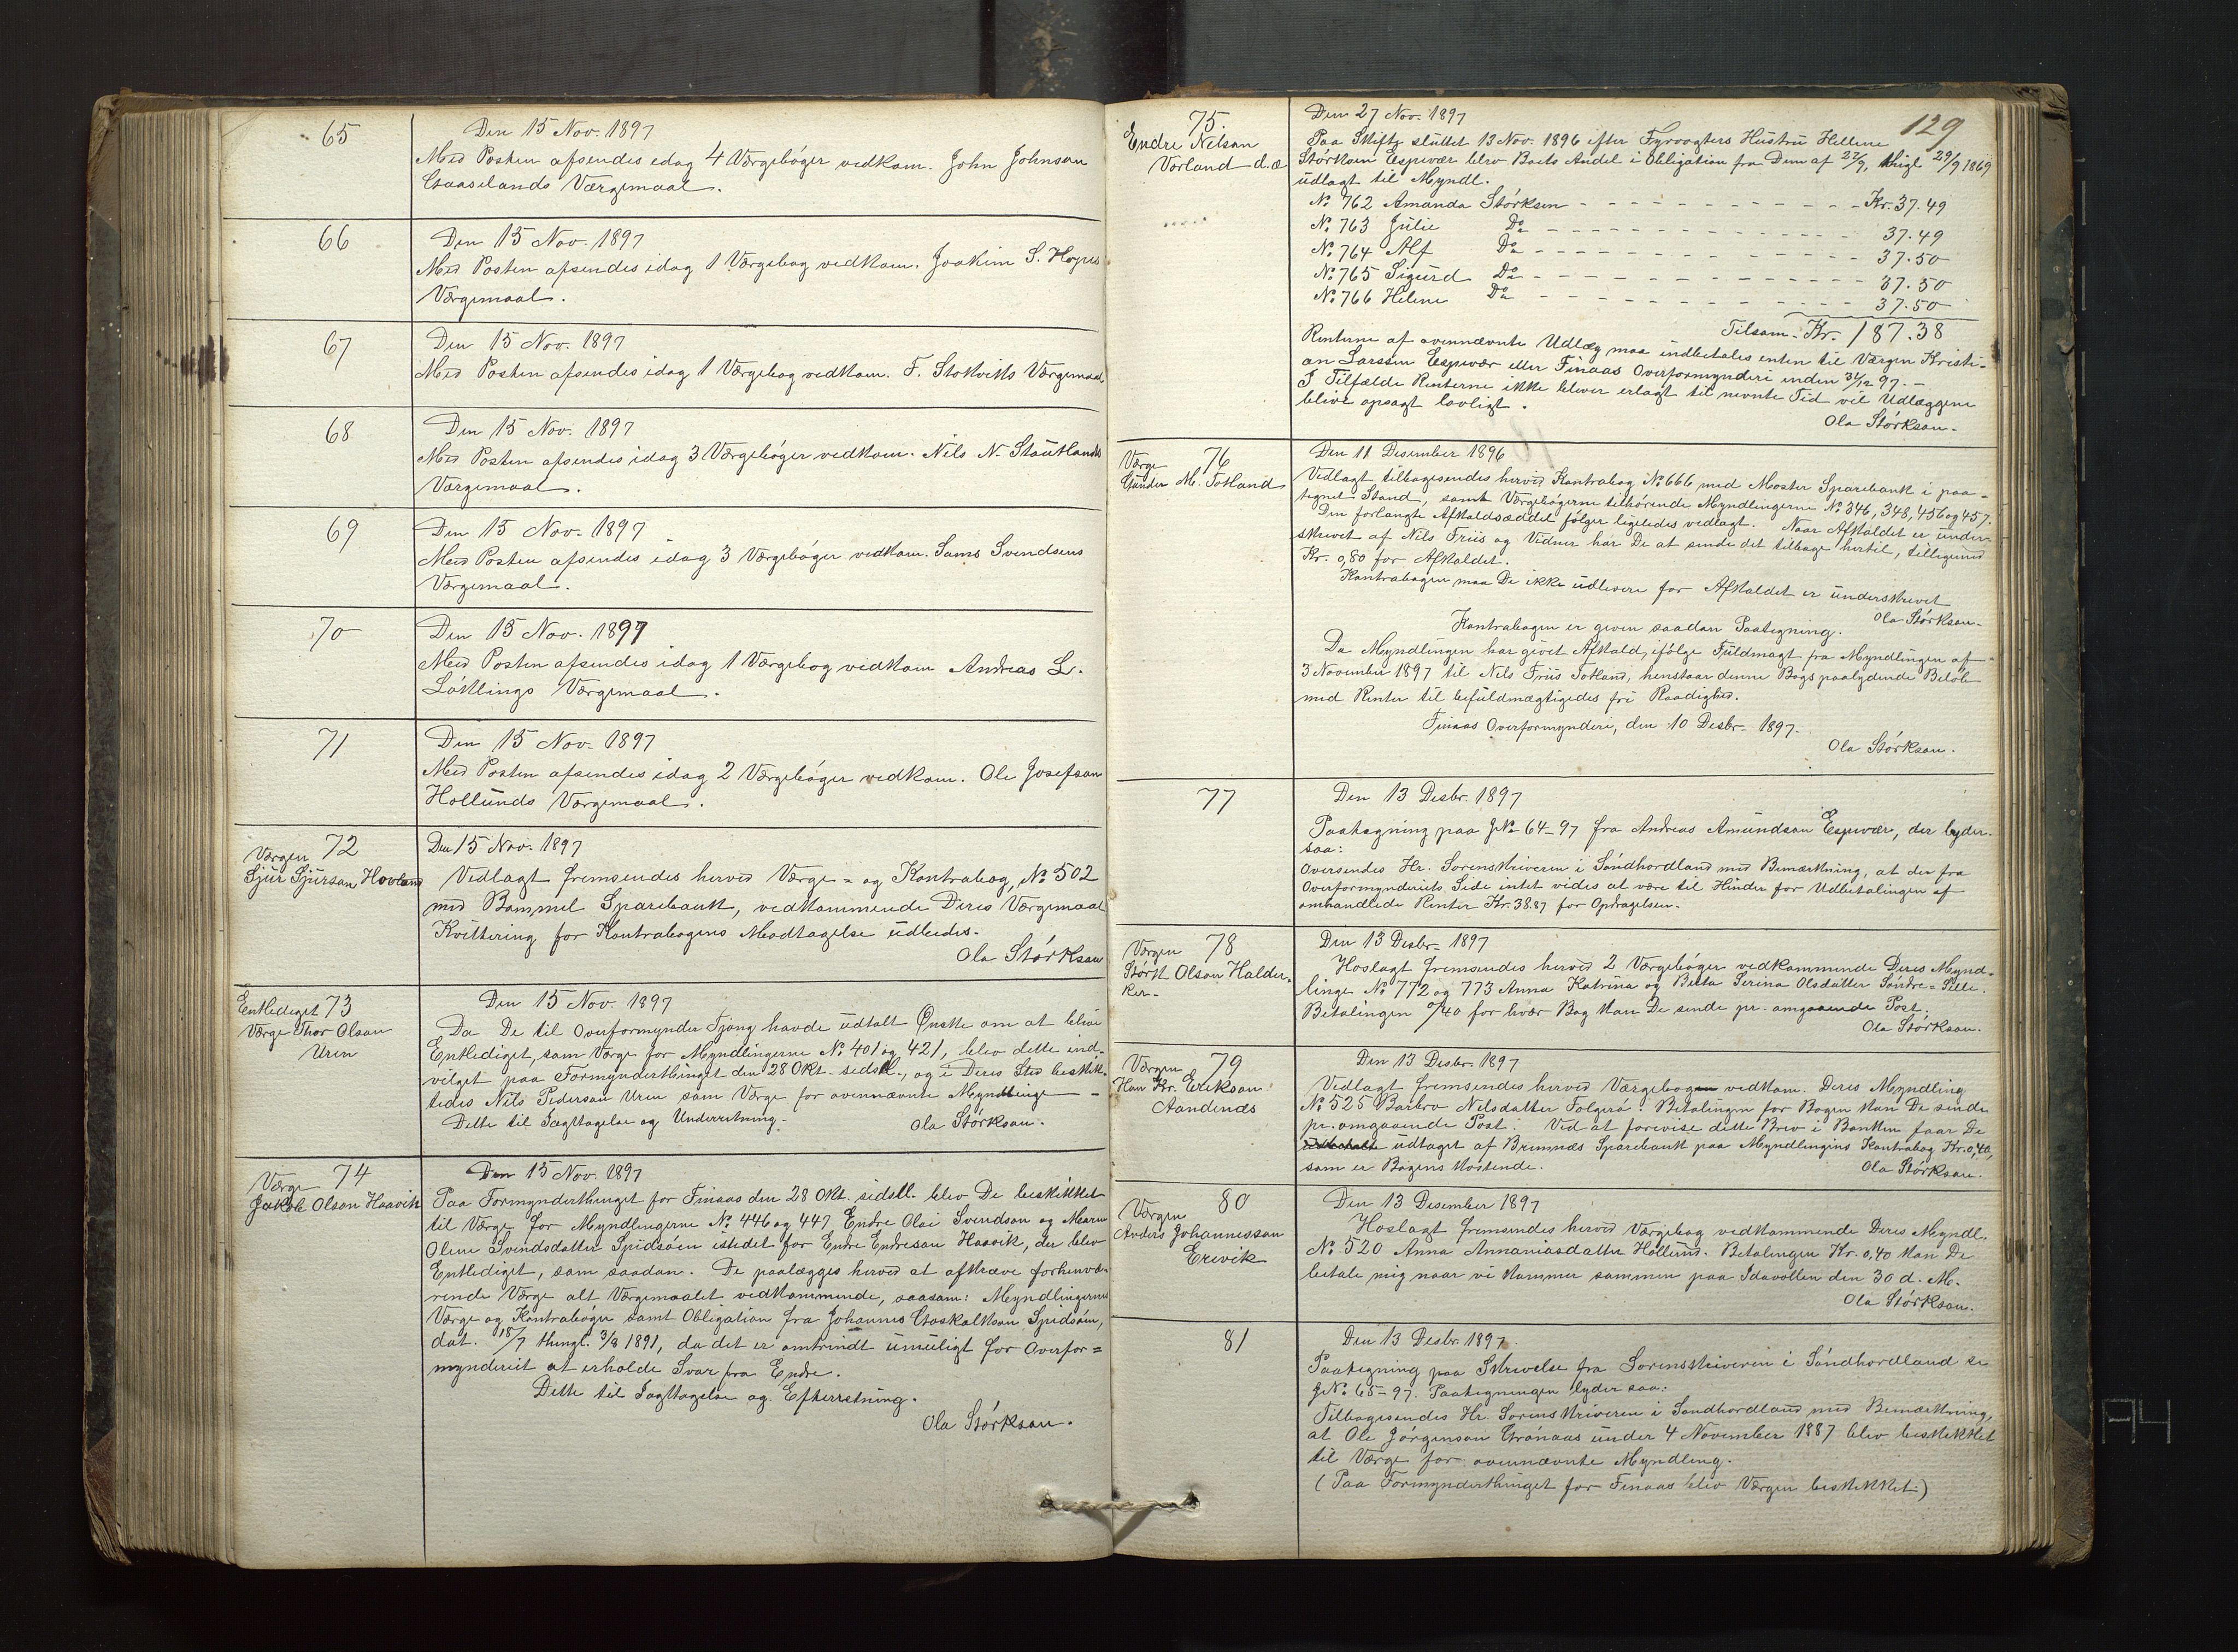 65
Den 15 Nov. 1897
Med Posten afsendes idag 4 Værgebøger vedkom. John Johnson
Gaaselands Værgemaal.
66
Den 15 Nov. 1897
Med Posten afsendes idag 1 Værgebog vedkom. Joakim S. Høyes
Værgemaal.
67
Den 15 Nov. 1897
Med Posten afsendes idag 1 Værgebog vedkom. F. Stokviks Værgemaal
68
Den 15 Nov. 1897
Med Posten afsendes idag 3 Værgebøger vedkom. Nils N. Stautlands
Værgemaal.
69
Den 15 Nov. 1897
Med Posten afsendes idag 3 Værgebøger vedkom. Sams Svendsens
Værgemaal.
70
Den 15 Nov. 1897
Med Posten afsendes idag 1 Værgebog vedkom Andreas L.
Løklings Værgemaal.
71
Den 15 Nov. 1897
Med Posten afsendes idag 2 Værgebøger vedkom. Ole Josefson
Hollunds Værgemaal.
72
Værgen
Sjur Sjurson Hovland
Den 15 Nov. 1897
Vedlagt fremsendes herved Værge- og Kontrabog, No 502
med Bømmel Sparebank, vedkommende Deres Værgemaal
Kvittering for Kontrabogens Modtagelse udbedes.
Ola Størkson
73
Entlediget
Værge Thor Olson
Uren
Den 15 Nov. 1897
Da De til Overformynder Tjong havde udtalt Ønske om at blive
Entlediget, som Værge for Myndlingerne No 401 og 421, blev dette ind-
vilget paa Formynderthinget den 28 Okt. sidstl., og i Deres Sted beskik-
kedes Nils Pederson Uren som Værge for ovennævnte Myndlinge
Dette til Iagttagelse og Underretning.
Ola Størkson.
74
Værge
Jakob Olson Haavik
Den 15 Nov. 1897
Paa Formynderthinget for Finaas den 28 Okt. sidstl. blev De beskikket
til Værge for Myndlingerne No 446 og 447 Endre Olai Svendson og Maren
Oline Svendsdatter Spidsøen istedet for Endre Endreson Haavik, der blev
Entlediget, som saadan. De paalægges herved at afkræve forhenvæ-
rende Værge alt Værgemaalet vedkommende, saasom: Myndlingernes
Værge og Kontrabøger samt Obligation fra Johannes Goskalkson Spidsøen,
dat. 18/7 thingl. 3/8 1891, da det er omtrindt umuligt for Overfor=
mynderiet at erholde Svar fra Endre.
Dette til Iagttagelse og Efterretning.
Ola Størkson.
129
75.
Endre Nilson
Vorland d.æ
Den 27 Nov. 1897
Paa Skifte sluttet 13 Nov. 1896 efter Fyrvogters Hustru Hellene
Størkson Espevær blev Boets Andel i Obligation fra Dem af 27/9, thigl 29/9 1869
udlagt til Myndl.
No 762 Amanda Størksen - - - - - Kr. 37.49
No 763 Julie Do - - - - - 37.49
No 764 Alf Do - - - - - 37.50
No 765 Sigurd Do - - - - - 37.50
No 766 Helene Do - - - - - 37.50
Tilsam. Kr. 187.38
Renterne af ovennævnte Udlæg maa indbetales enten til Værgen Kristi-
an Larssen Espevær eller Finaas Overformynderi inden 31/12 97. -
I Tilfælde Renterne ikke bliver erlagt til nevnte Tid vil Udlæggene
blive opsagt lovligt.
Ola Størkson.
76
Værge
Gunder M. Totland
Den 11 Desember 1896
Vedlagt tilbagesendes herved Kontrabog No 666 med Moster Sparebank i paa-
tegnet Stand, samt Værgebøgerne tilhørende Myndlingerne No 346, 348, 456 og 457.
Den forlangte Afkaldsæddel følger ligeledes vedlagt. Naar Afkaldet er under-
skrevet af Nils Friis og Vidner har De at sende det tilbage hertil, tilligemed
Kr. 0,80 for Afkaldet.
Kontrabogen maa De ikke udlevere før Afkaldet er underskrevet
Ola Størkson.
Kontrabogen er given saadan Paategning.
Da Myndlingen har givet Afkald, ifølge Fuldmagt fra Myndlingen af
3 November 1897 til Nils Friis Totland, henstaar denne Bogs paalydende Beløb
med Renter til befuldmægtigedes fri Raadighed.
Finaas Overformynderi, den 10 Desbr. 1897.
Ola Størkson.
77
Den 13 Desbr. 1897
Paategning paa JNo 64-97 fra Andreas Amundson Espevær, der lyder
saa:
Oversendes Hr. Sorenskriveren i Søndhordland med Bemærkning, at der fra
Overformynderiets Side intet vides at være til Hinder for Udbetalingen af
omhandlede Renter Kr. 38.87 for Opdragelsen.
78
Værgen
Størk Olson Halder-
ker.
Den 13 Desbr. 1897
Hoslagt fremsendes herved 2 Værgebøger vedkommende Deres Mynd-
linge No 772 og 773 Anna Katrina og Berta Serina Olsdatter Søndre=Selle.
Betalingen 0/40 for hver Bog kan De sende pr. omgaaende Post.
Ola Størkson.
79
Værgen
Han Kr. Erikson
Aandenæs
Den 13 Desbr. 1897
Vedlagt fremsendes herved Værgebogen vedkom. Deres Myndling
No 525 Barbro Nilsdatter Folgerø. Betalingen for Bogen kan De sende
pr. omgaaende Post. Ved at forevise dette Brev i Banken faar De
udtaget af Bremnæs Sparebank paa Myndlingens Kontrabog Kr. 0,40,
som er Bogens Kostende.
Ola Størkson.
80
Værgen
Anders Johannesson
Erevik
Den 13 Desember 1897
Hoslagt fremsendes herved Værgebog vedkommende Deres Myndl.
No 520 Anna Annaniasdatter Hollund. Betalingen Kr. 0,40 kan De
betale mig naar vi kommer sammen paa Idavollen den 30 d. M.
Ola Størkson.
81
Den 13 Desbr. 1897.
Paategning paa Skrivelse fra Sorenskriveren i Søndhordland se
JNo 65-97. Paategningen lyder saa:
Tilbagesendes Hr. Sorenskriveren i Søndhordland med Bemærkning,
at Ole Jørgenson Grønaas under 4 November 1887 blev beskikket
til Værge for ovennævnte Myndling.
(Paa Formynderthinget for Finaas blev Værgen beskikket.)